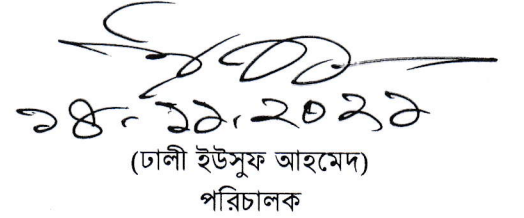 ১৪.১১.২০২১
(ঢালী ইউসুফ আহমেদ)
পরিচালক